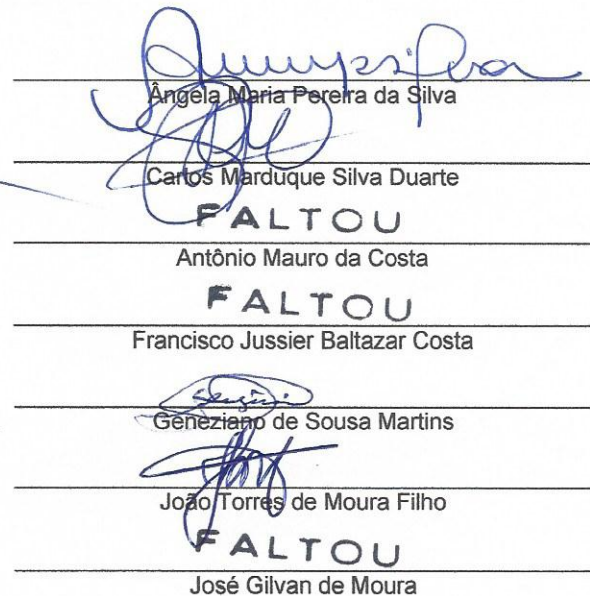 Ângela Maria Pereira da Silva
Carlos Marduque Silva Duarte
FALTOU
Antônio Mauro da Costa
FALTOU
Francisco Jussier Baltazar Costa
Geneziano de Sousa Martins
João Torres de Moura Filho
FALTOU
José Gilvan de Moura